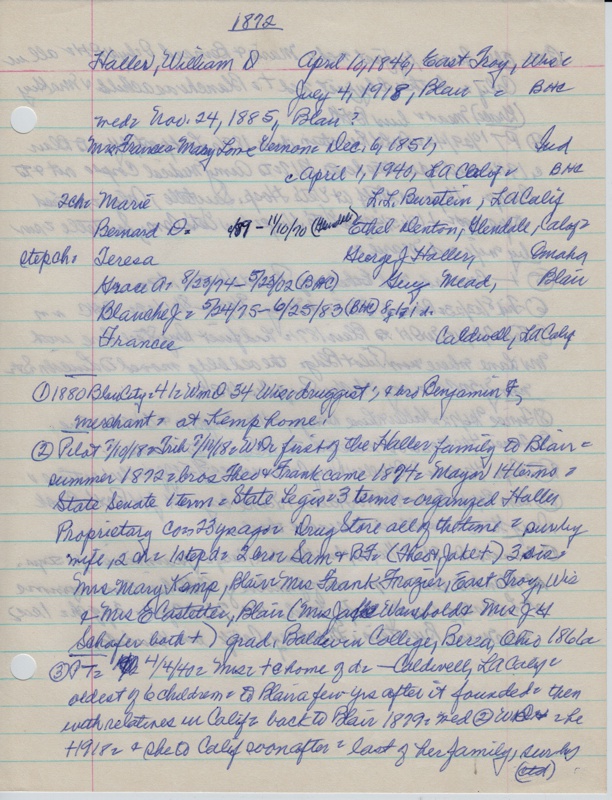 1872
Haller, William D April 10, 1846, East Troy, Wisc
July 4, 1918, Blair = BHC
wed = Nov. 24, 1885, Blair?
Mrs Frances Mary Love Vernon = Dec. 6, 1851, Ind
c April 1, 1940, LA Calif = BHC
2ch = Marie L.L. Burstein, LA Calif
Bernard D = - 11/10/70 Ethel Denton, Glendale, Calif =
stepch = Teresa George J Haller, Omaha
Grace A = 8/23/74 - 5/23/02 (BHC) Guy Mead, Blair
Blanche J = 5/24/75 - 6/25/83 (BHC) 8y 1m 1d =
Frances Caldwell, LA Calif
① 1880 Blair City = 41 = Wm D 34 Wisc druggist; & bro Benjamin F,
merchant = at Kemp home.
② Pilot 7/10/18 = Trib 7/11/18 = WD = first of the Haller family to Blair =
summer 1872 = bros Theo & Frank came 1874 = Mayor 14 terms =
State Senate 1 term = State Legis = 3 terms = organized Haller
Proprietary Co = 23 ys ago = Drug Store all of the time = surv by
wife, 2 ch = 1 stepd = 2 bro = Sam & BF = (Theo & Jake +) 3 sis =
Mrs Mary Kemp, Blair = Mrs Frank Frazier, East Troy, Wis
& Mrs E Castetter, Blair (Mrs Warsholds Mrs J H
Schafer both +) grad, Baldwin College, Berea, Ohio
③ PT = 4/4/40 = Mrs = + @ home of d = - Caldwell, LA Calif =
oldest of 6 children = to Blair a few yrs after it founded = then
with relatives in Calif = back to Blair 1879 = wed ② WD = he
+ 1918 = & she to Calif soon after = last of her family, surv by